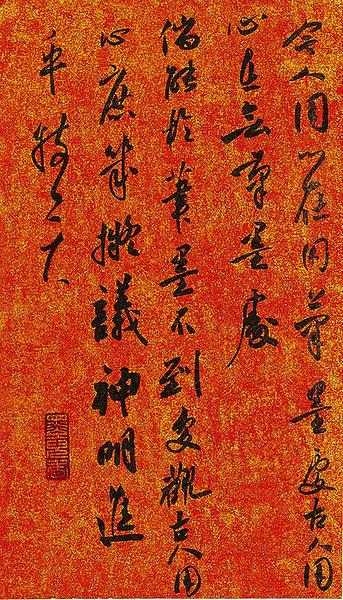 今人用心在用筆墨處古人用
心在無筆墨處
倘能於筆墨不到處觀古人用
心庶幾擬議神明進
乎技